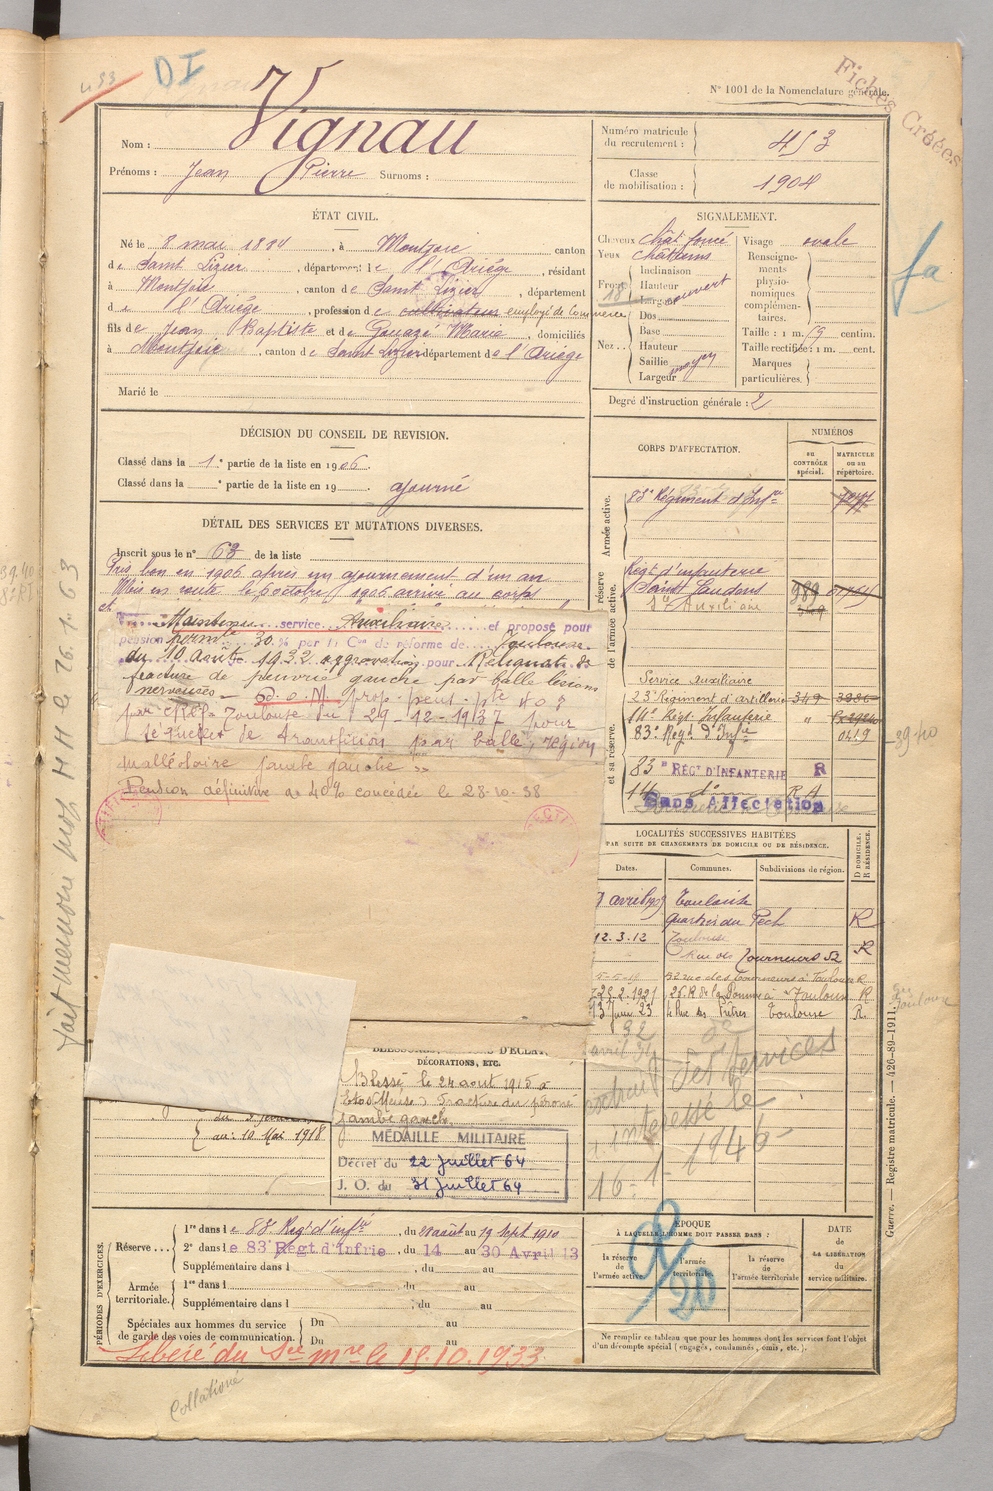 493
DI
Fiches Créées
N° 1001 de la Nomenclature générale.
Nom : Vignau
Prénoms : Jean Pierre Surnoms :
Numéro matricule du recrutement : 453
Classe de mobilisation : 1904
ÉTAT CIVIL.
Né le 8 mai 1884, à Montjoie canton
de Saint Lizier, département de l'Ariège, résidant
à Montjoie, canton de Saint Lizier, département
de l'Ariège, profession de cultivateur employé de commerce
fils de Jean Baptiste et de Gouazé Marie, domiciliés
à Montjoie, canton de Saint Lizier département de l'Ariège
Marié le
SIGNALEMENT.
Cheveux chât foncé
Yeux châtains
Front Inclinaison
Hauteur
Largeur
ouvert
Nez Dos
Base
Hauteur
Saillie
Largeur
moyen
Visage ovale
Renseignements physionomiques complémentaires.
Taille : 1 m. 59 centim.
Taille rectifiée : 1 m. cent.
Marques particulières.
Degré d'instruction générale : 2
DÉCISION DU CONSEIL DE REVISION.
Classé dans la 1e partie de la liste en 1906.
Classé dans la e partie de la liste en 19 ajourné
DÉTAIL DES SERVICES ET MUTATIONS DIVERSES.
Inscrit sous le n° 63 de la liste
Pris bon en 1906 après un ajournement d'un an
Mis en route le 6 octobre 1906 arrivé au corps
Maintenu service Auxiliaire et proposé pour
pension permte 30 % par la Con de réforme de Toulouse
du 10 Août 1932 approvation pour Reliquat de
fracture de peuvrié gauche par balle lésions
nerveuses — prop. pent. pte 40 %
par CR Toulouse du 29-12-1937 pour
séquelles de transfixion par balle, région
malléolaire jambe gauche
Pension définitive de 40% concédée le 28-10-38
CORPS D'AFFECTATION.
NUMÉROS
au CONTRÔLE spécial.
MATRICULE ou au répertoire.
Armée active.
83e Régiment d'Infie
réserve de l'armée active.
Régt d'infanterie
Saint Gaudens 989
Sce Auxiliaire 349
Service Auxiliaire
23e Régiment d'artillerie 349
14e Régt Infanterie "
83e Regt d'Infie 0419
et sa réserve.
83e REGt D'INFANTERIE R
14 do R.A
Sans Affectation
39-40
LOCALITÉS SUCCESSIVES HABITÉES
PAR SUITE DE CHANGEMENTS DE DOMICILE OU DE RÉSIDENCE.
Dates. Communes. Subdivisions de région. D DOMICILE. R RÉSIDENCE.
Toulouse
Quartier du Pech R
12.3.12 Toulouse
Rue des Tourneurs 52 R
52 rue des Tourneurs à Toulouse R
25.2.1921 26 R de la Pomme à Toulouse R
13 Juin 23 4 Rue des Frères Toulouse R.
extrait des services
intéressé le
16-1-1946
Toulouse
fa
fait memoire pro MH le 26.1.63
DÉCORATIONS, ETC.
Blessé le 24 aout 1915 à
(Meuse) Fracture du péroné
jambe gauche.
MÉDAILLE MILITAIRE
Décret du 22 Juillet 64
J. O. du 31 Juillet 64
au : 10 Mai 1918
PÉRIODES D'EXERCICES.
Réserve... 1re dans le 83e Regt d'infie, du 28 août au 19 Sept 1910
2e dans le 83e Régt d'Infrie, du 14 au 30 Avril 13
Supplémentaire dans l , du au
Armée territoriale. 1re dans l , du au
Supplémentaire dans l , du au
Spéciales aux hommes du service de garde des voies de communication. Du au
Du au
Libéré du Sce mre le 15.10.1933
ÉPOQUE
À LAQUELLE L'HOMME DOIT PASSER DANS :
la réserve de l'armée active
l'armée territoriale.
la réserve de l'armée territoriale
DATE DE LA LIBÉRATION du service militaire.
R/20
Ne remplir ce tableau que pour les hommes dont les services font l'objet
d'un décompte spécial (engagés, condamnés, omis, etc.).
Guerre. — Registre matricule. — 426-89-1911.
Collationné